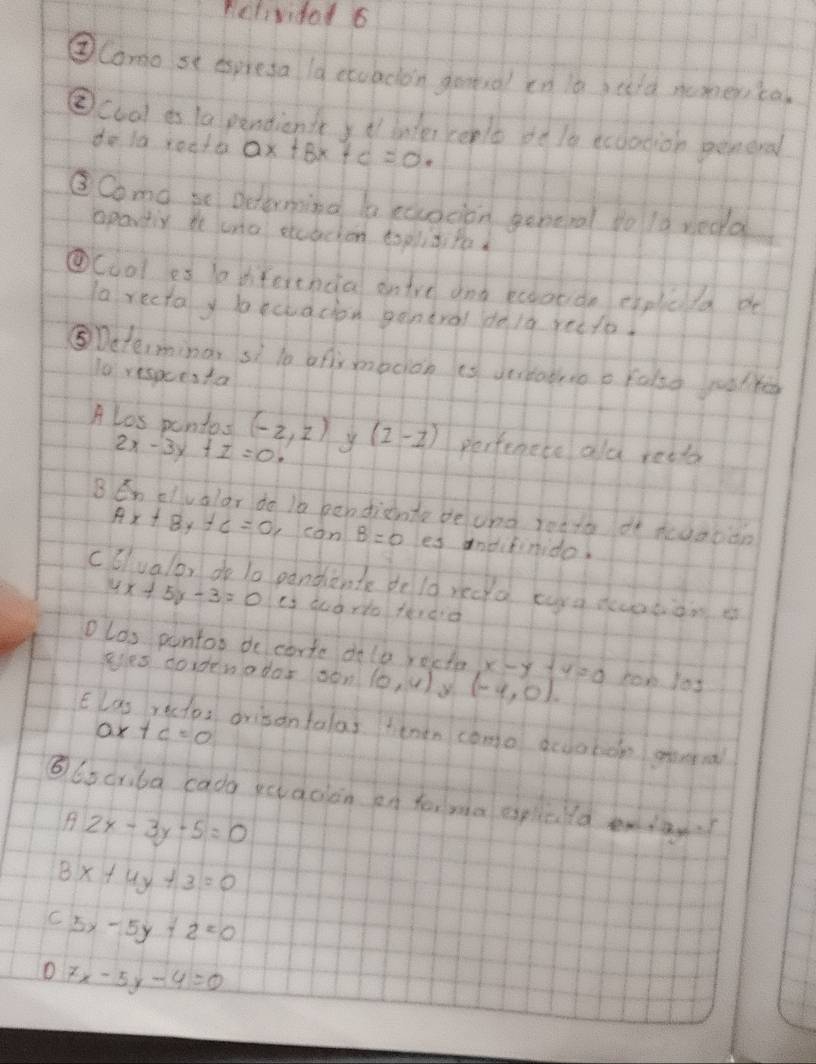 Actividad 6
① Como se espresa la ecuación general en la recta numerica.
② Cual es la pendiente y el intercepto de la ecuación general
de la recta ax + Bx + c = 0.
③ Como se Determina la ecuación general de la recta
apartir de una ecuacion esplisita.
④ Cual es la diferencia entre una ecuación explicita de
la recta y la ecuación general de la recta.
⑤ Determinar si la afirmacion es verdadero o falso
la respuesta
A Los puntos (-2, 1) y (1 -1) pertenece ala recta
2x - 3y + 1 = 0.
B En el valor de la pendiente de una recta de ecuación
Ax + By + c = 0, con B = 0 es indifinido.
C El valor de la pendiente de la recta cuya ecuación es
4x + 5y - 3 = 0 es cuarto tercio
D Los puntos de corte de la recta x - y + 4 = 0 con los
ejes coordenados son (0, 4) y (-4, 0).
E Las rectas orisontalas tienen como ecuación general
ax + c = 0
⑥ Escriba cada ecuación en forma esplicita
A 2x - 3y - 5 = 0
B x + 4y + 3 = 0
C 5x - 5y + 2 = 0
D 7x - 5y - 4 = 0